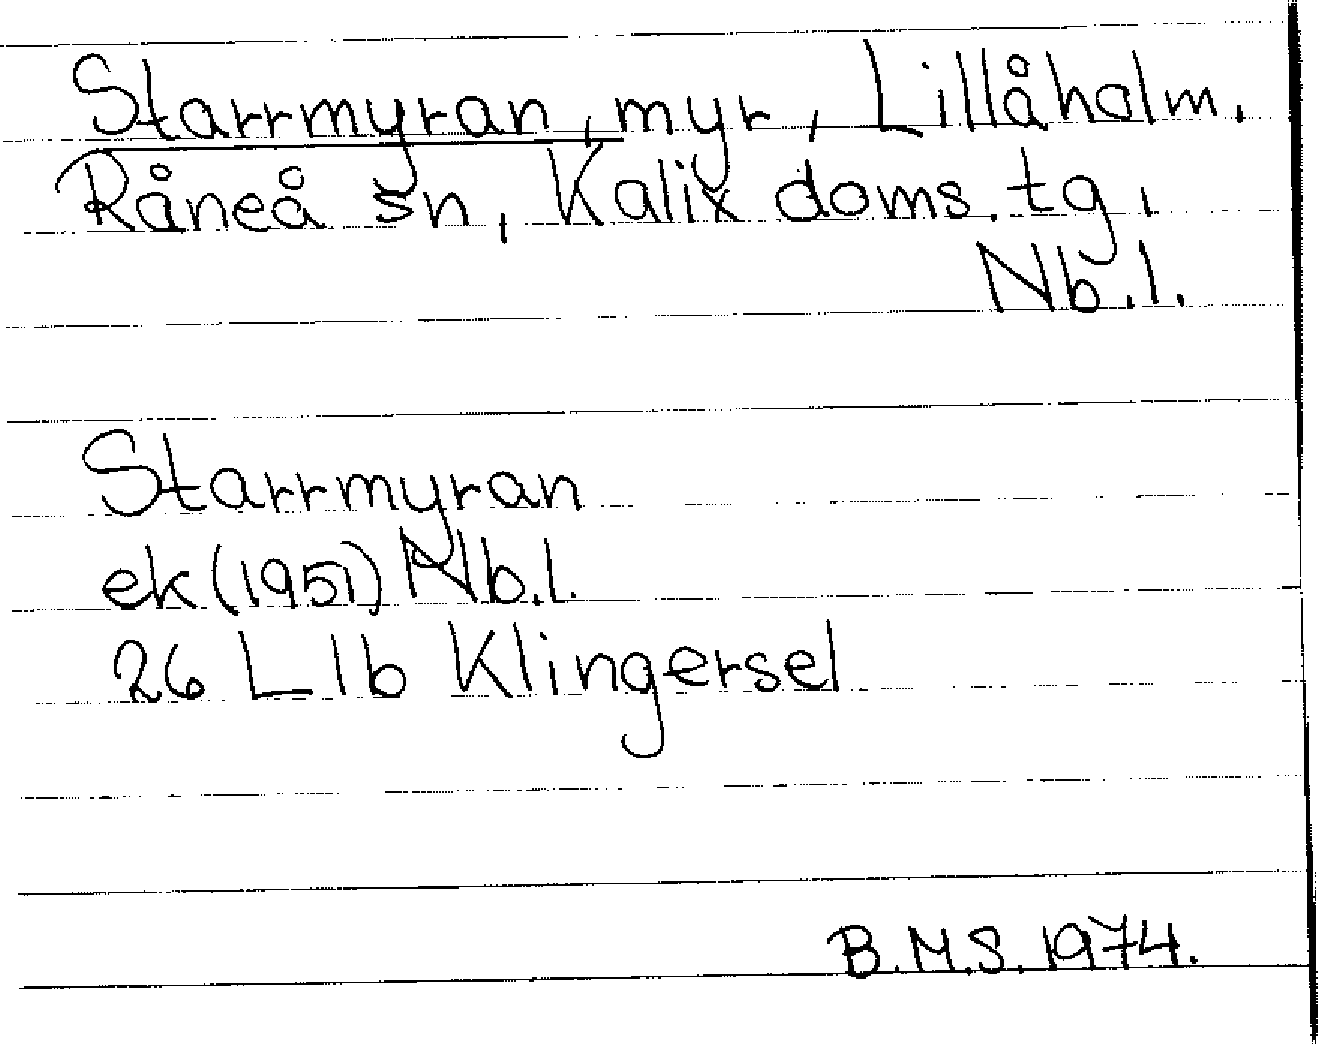 Starrmyran, myr, Lillåholm.
Råneå sn, Kalix doms. tg,
Nb.l.
Starrmyran
ek (1951) Nb.l.
26 L 1b Klingersel
B.M.S. 1974.